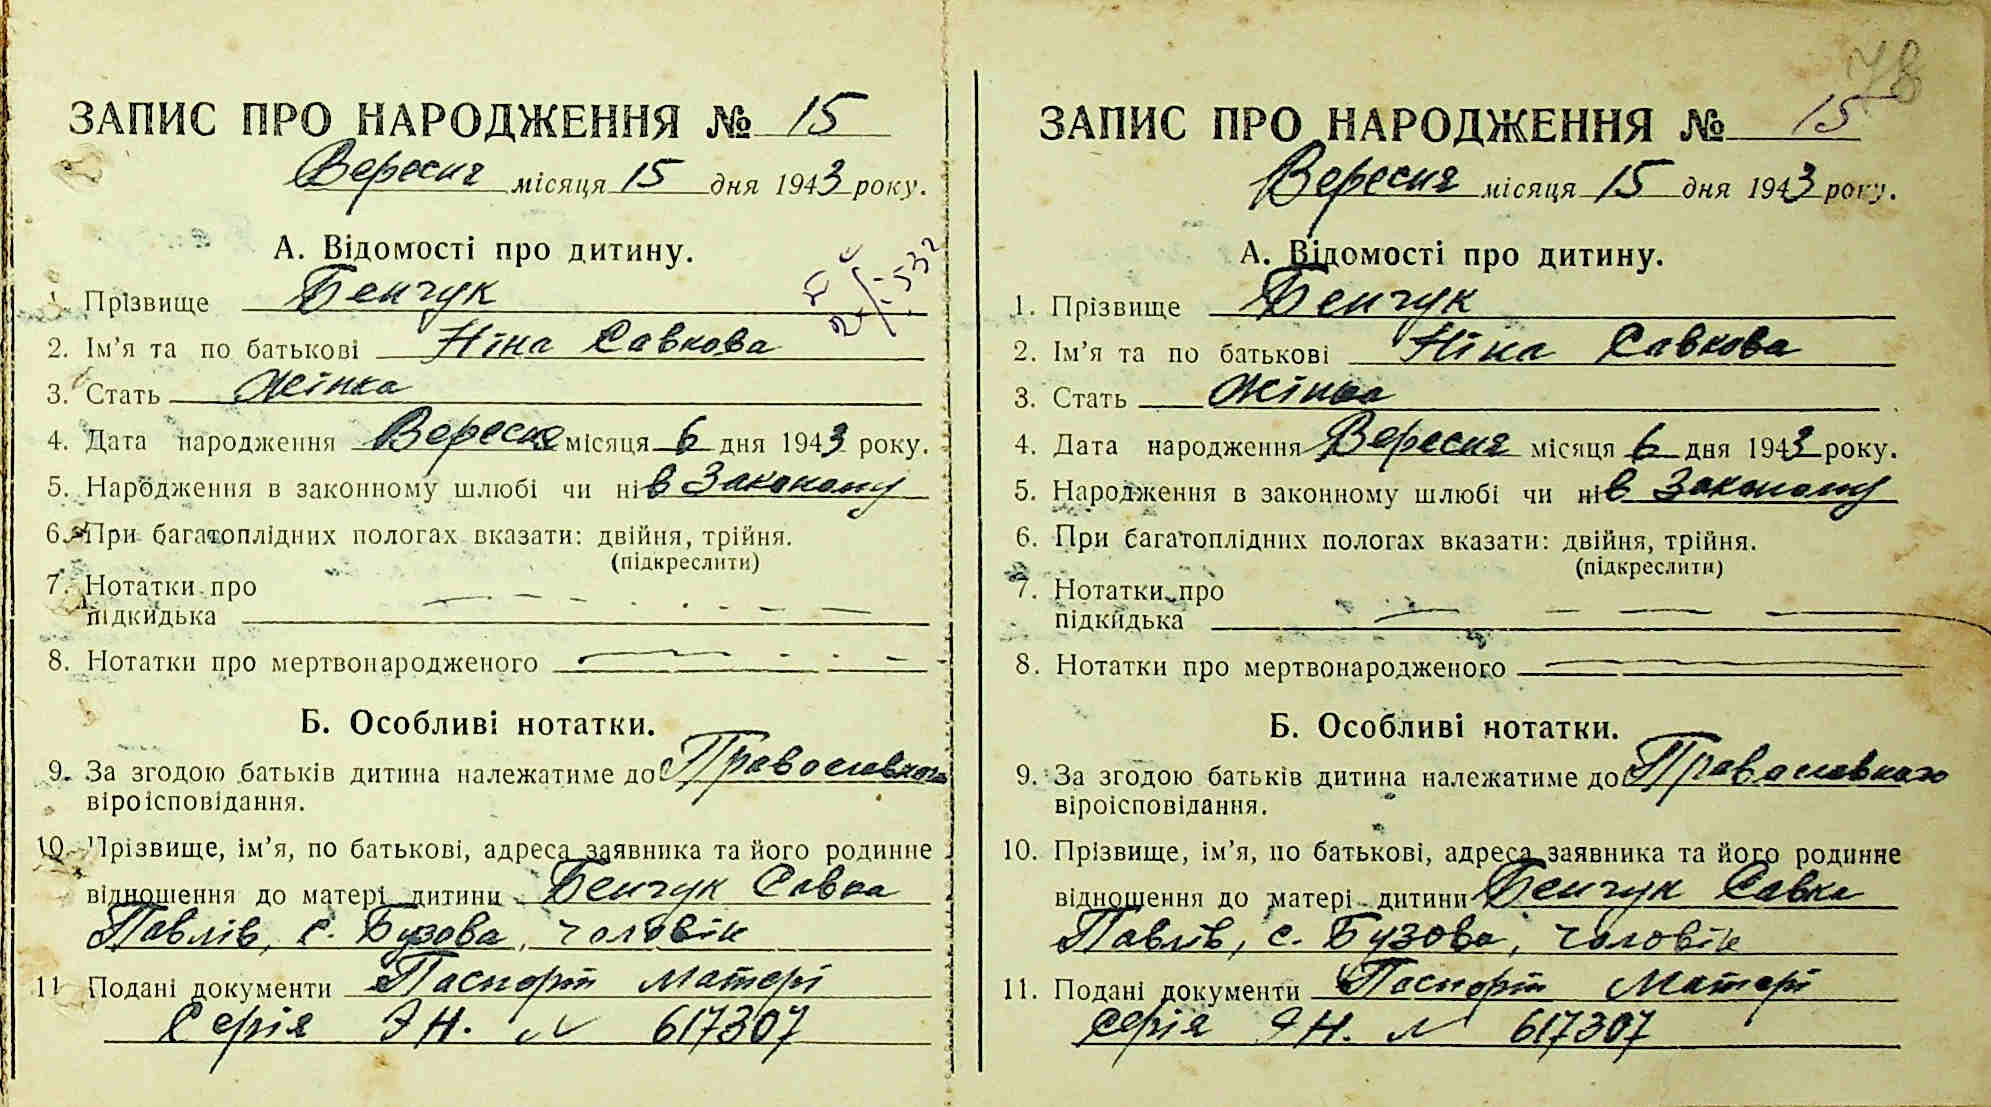 ЗАПИС ПРО НАРОДЖЕННЯ № 15
Вересня місяця 15 дня 1943 року.
А. Відомості про дитину.
Прізвище Бенчук
2. Ім’я та по батькові Ніна Савкова
3. Стать Жінка
4. Дата народження Вересня місяця 6 дня 1943 року.
5. Народження в законному шлюбі чи ні в Законому
6. При багатоплідних пологах вказати: двійня, трійня.
(підкреслити)
7. Нотатки про
підкидька
8. Нотатки про мертвонародженого
Б. Особливі нотатки.
9. За згодою батьків дитина належатиме до Православного
віроісповідання.
10. Прізвище, ім’я, по батькові, адреса заявника та його родинне
відношення до матері дитини Бенчук Савка
Павлів, с. Бузова, чоловік
11 Подані документи Паспорт матері
Серія ЭН. N 617307
78
ЗАПИС ПРО НАРОДЖЕННЯ № 15
Вересня місяця 15 дня 1943 року.
А. Відомості про дитину.
1. Прізвище Бенчук
2. Ім’я та по батькові Ніна Савкова
3. Стать Жінка
4. Дата народження Вересня місяця 6 дня 1943 року.
5. Народження в законному шлюбі чи ні в Законому
6. При багатоплідних пологах вказати: двійня, трійня.
(підкреслити)
7. Нотатки про
підкидька
8. Нотатки про мертвонародженого
Б. Особливі нотатки.
9. За згодою батьків дитина належатиме до Православного
віроісповідання.
10. Прізвище, ім’я, по батькові, адреса заявника та його родинне
відношення до матері дитини Бенчук Савка
Павлів, с. Бузова, чоловік
11. Подані документи Паспорт Матері
Серія ЭН. N 617307